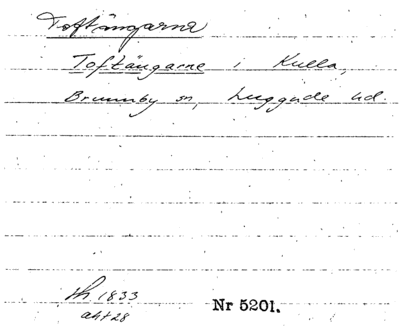 Toftängarna
Toftängarne i Kulla,
Brunnby sn, Luggude hd.
1833
akt 28
Nr 5201.